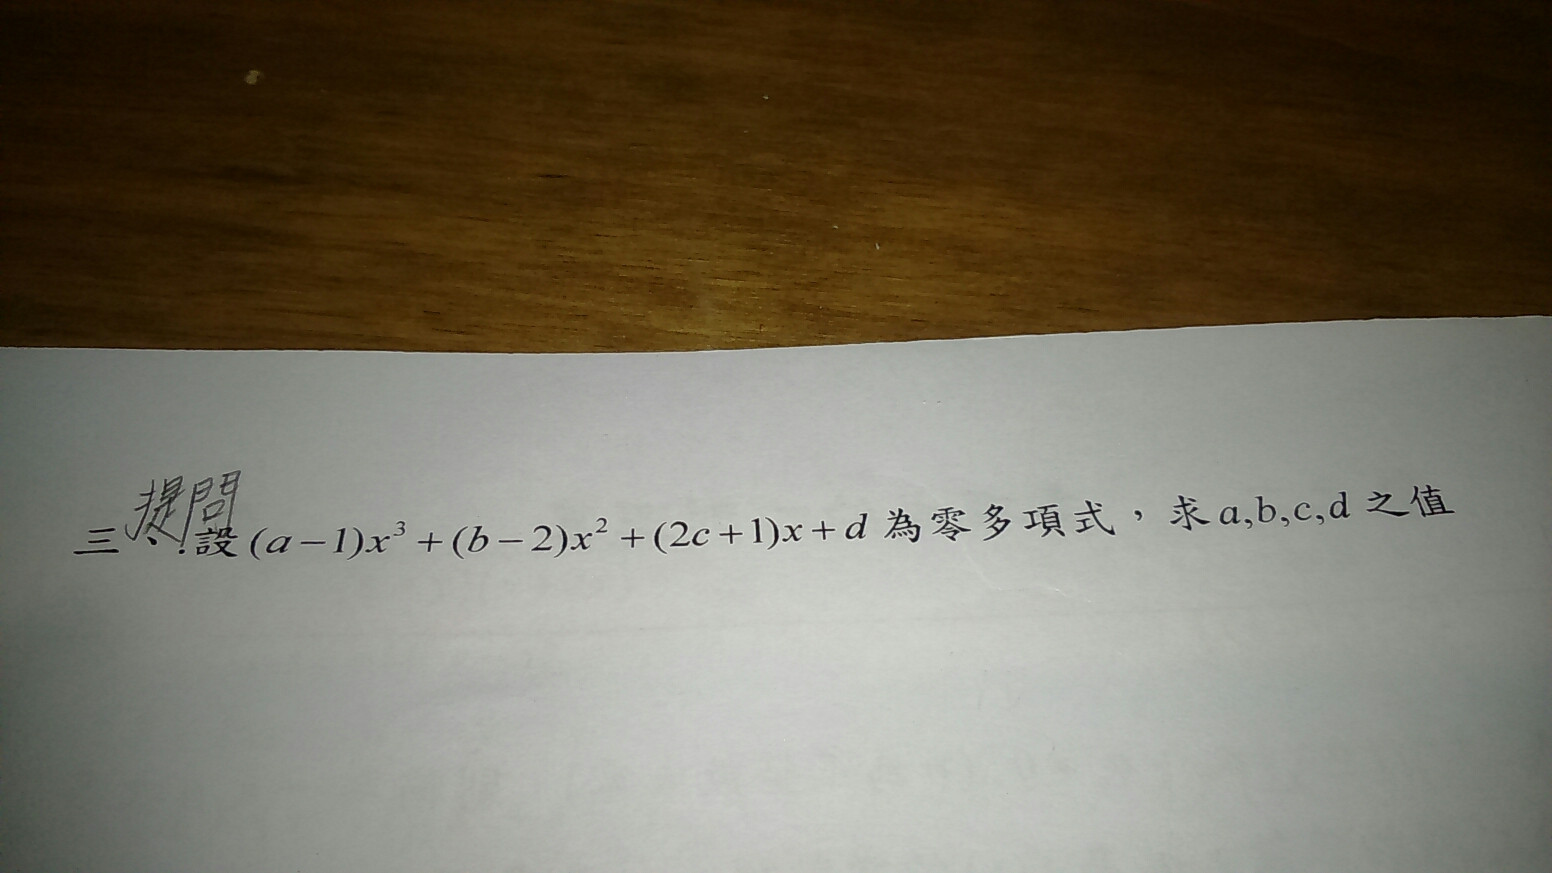 提問
三、.設 (a−1)x³+(b−2)x²+(2c+1)x+d 為零多項式，求a,b,c,d 之值